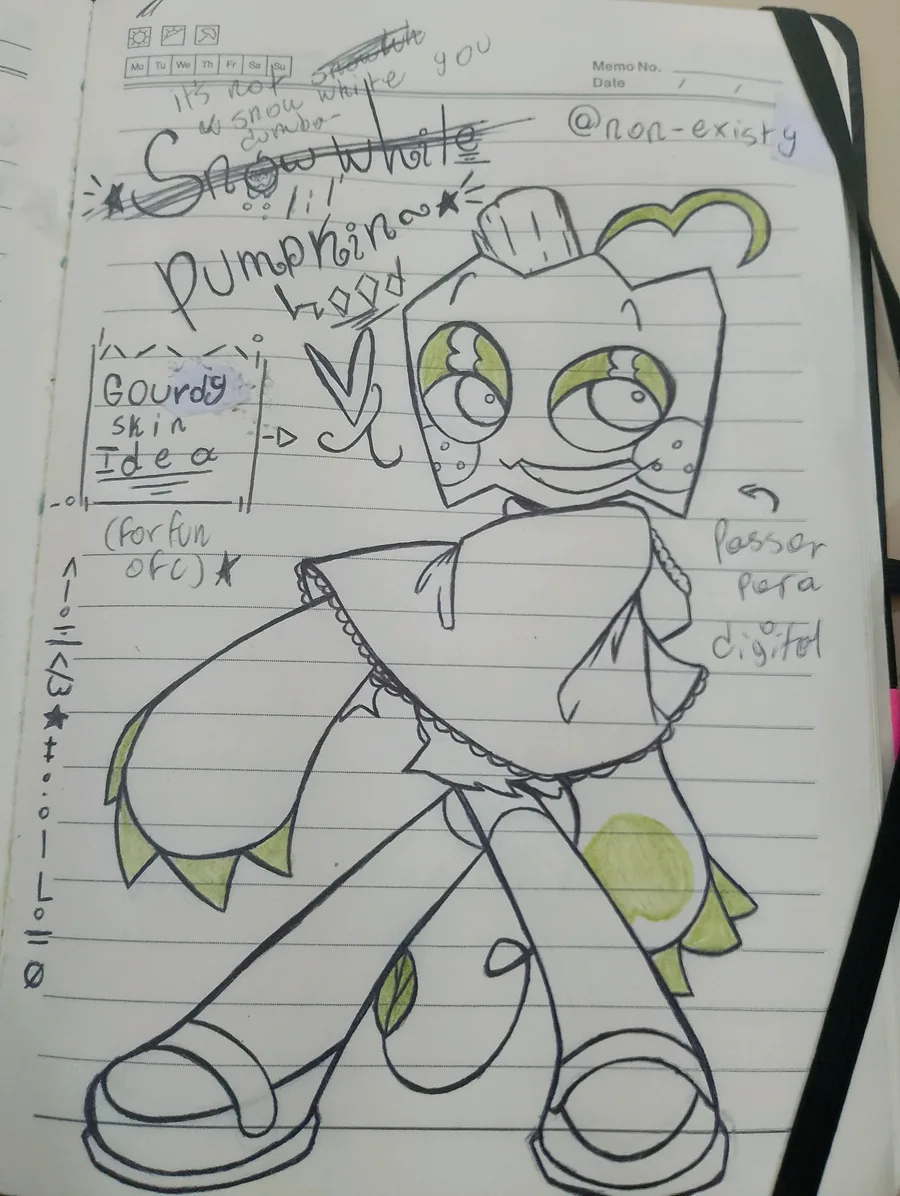 Mo Tu We Th Fr Sa Su
Memo No.
Date / /
it's not snow white you
dumba-
@non-existy
Snow white
lil'
pumpkin~
hood
Gourdy
skin
Idea
(for fun
ofc)
Passar
para
digital